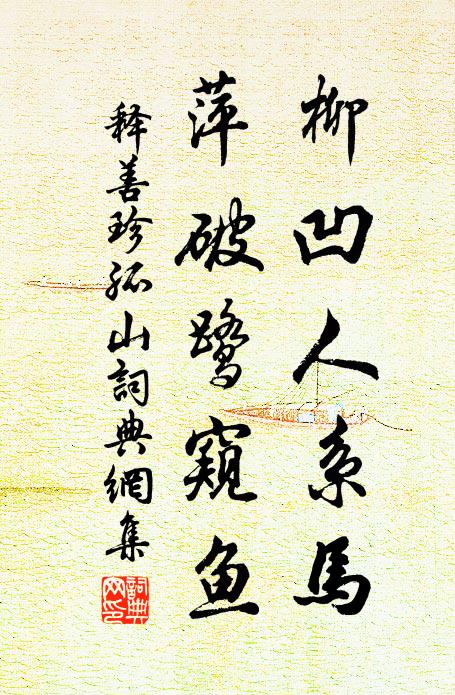 柳凹人系馬
萍破鹭窺鱼
释善珍孤山詞典網集
詞典网印